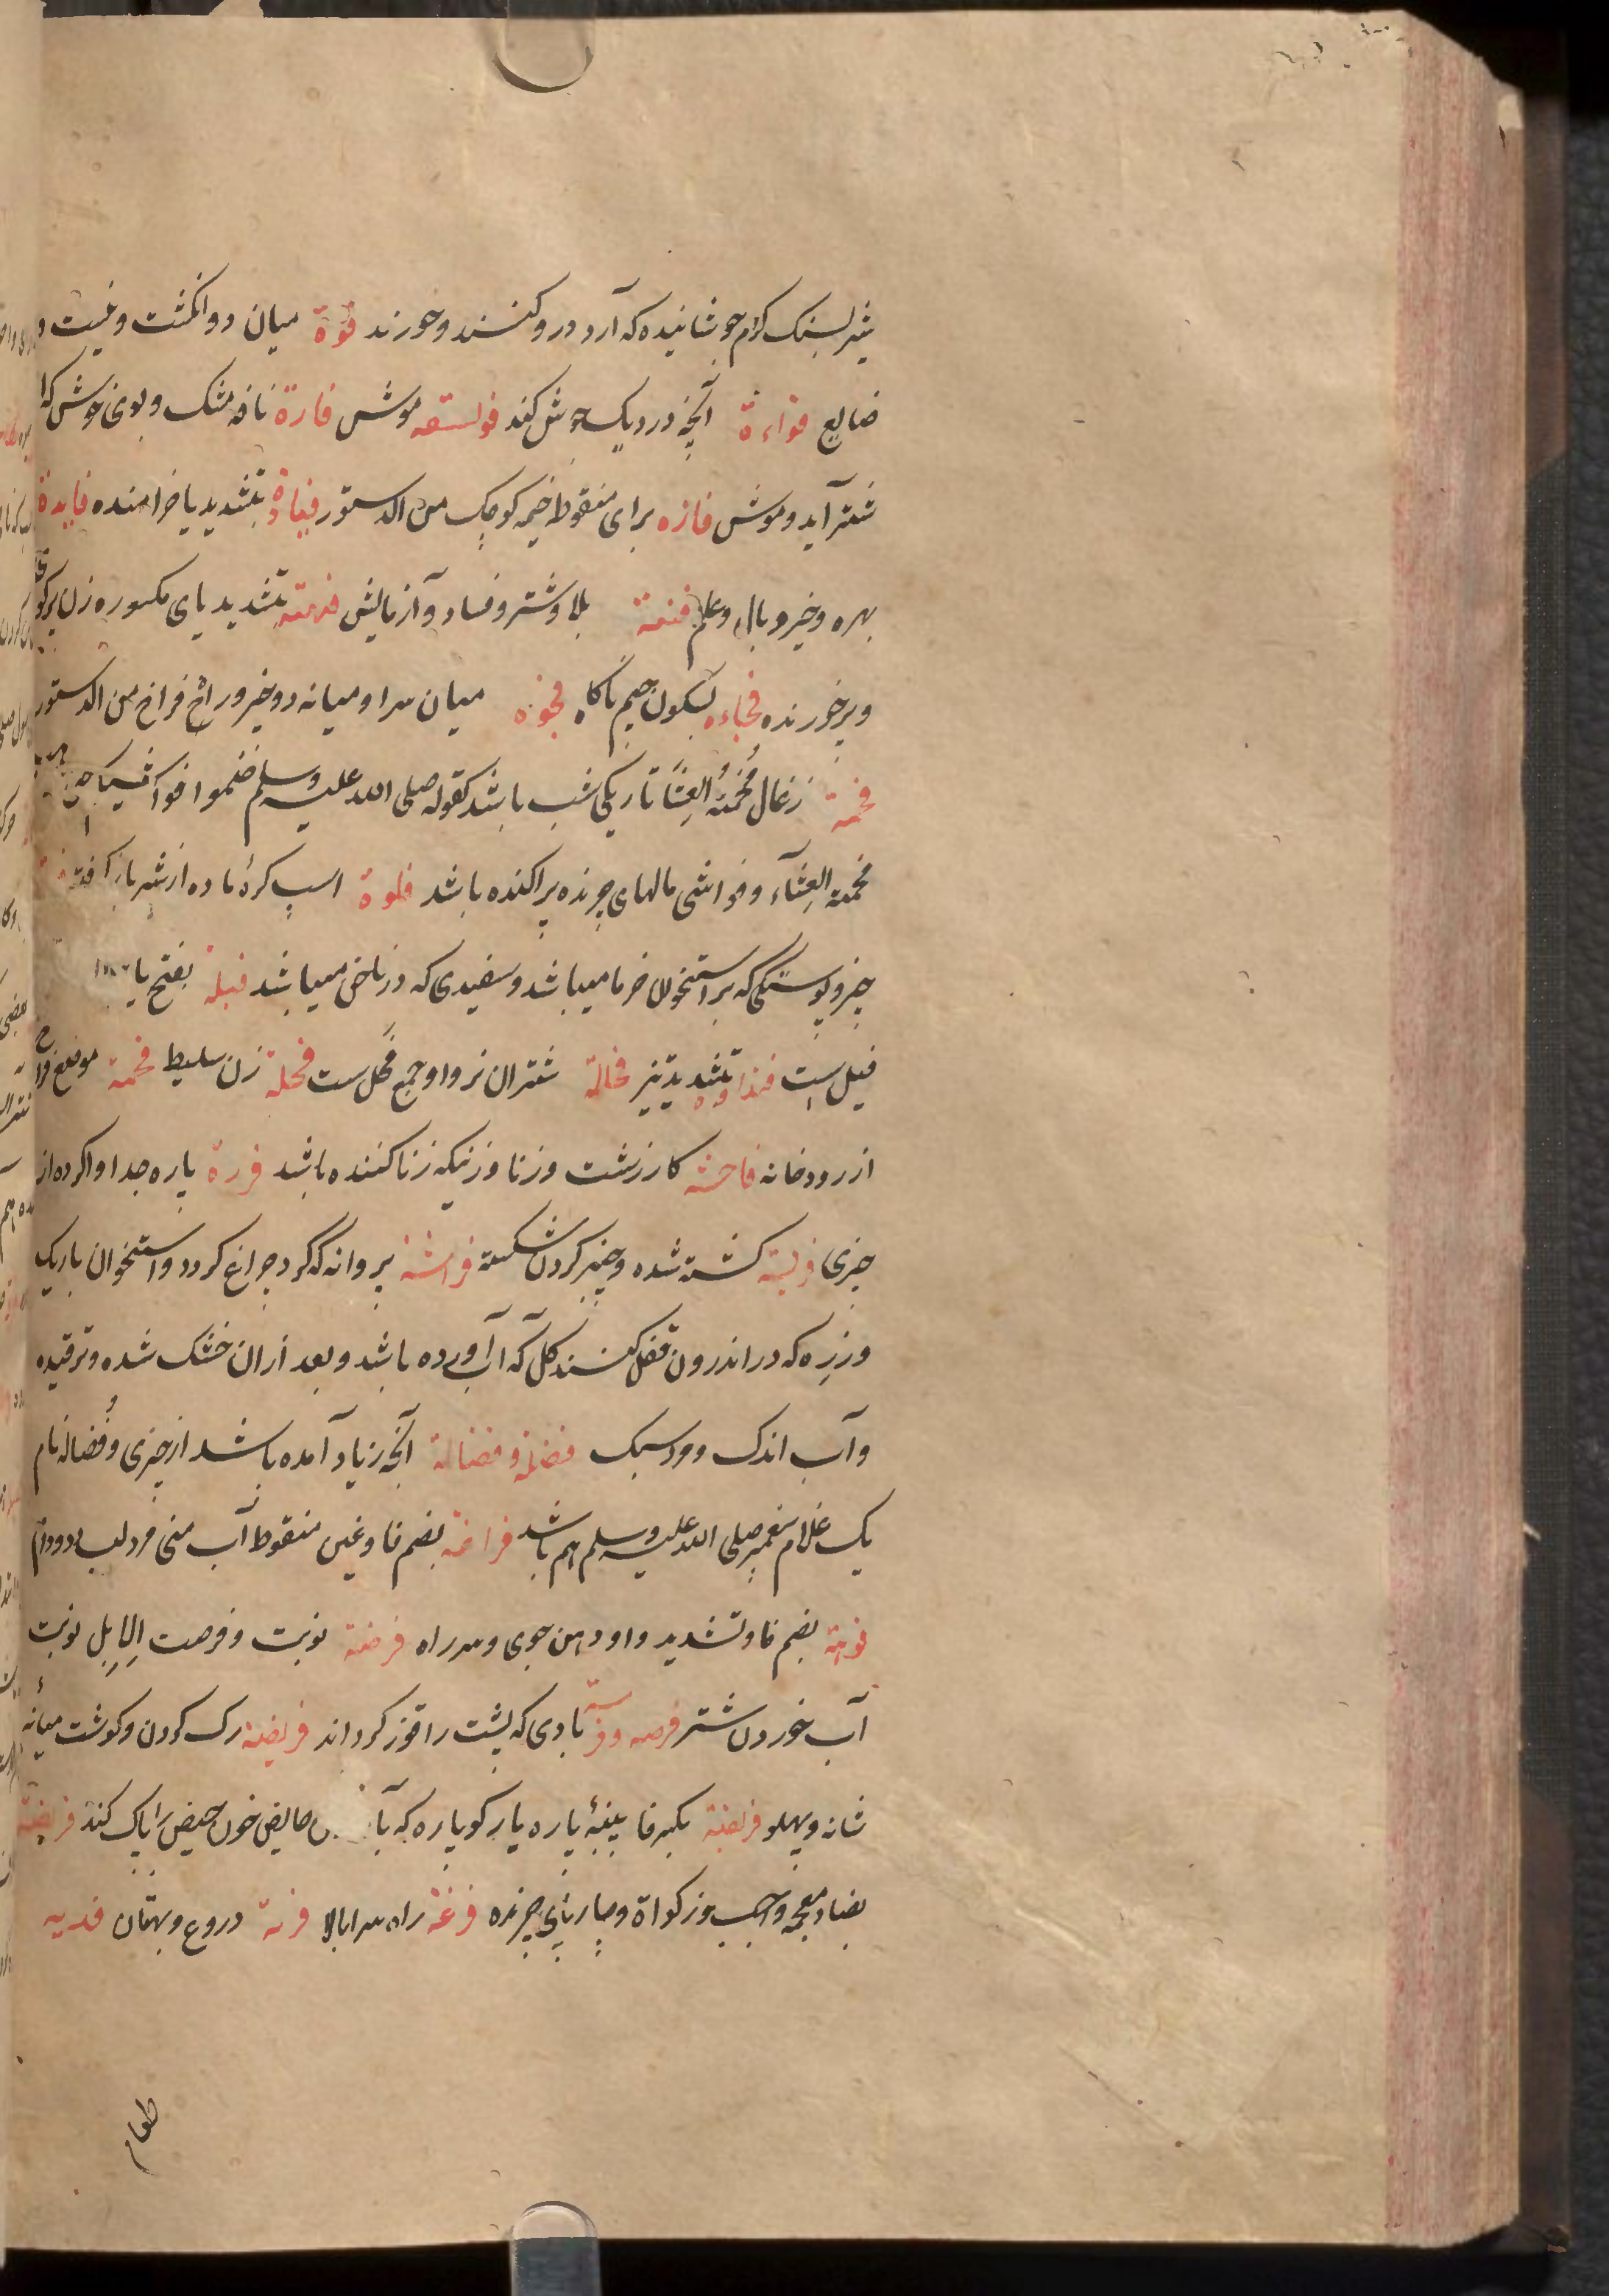 شیر بسنک کرم جوشانیده که آرد در و کنند و خورند فوة میان دو انکشت و غیبت و
ضایع فواءة آنچه در دیک جوش کند فولسقه موش فارة نافه مشک و بوی خوش که از
شتر آید و موش فازه برای منقوط خیمه کوچک من الدستور فیادة بتشدید یا خرامنده فایدة
بهره و خیر و مال و علم فتنة بلا و شتر و فساد و آزمایش فیهة بتشدید یای مکسوره زن پرکوی
و پرخورنده فجاءه بسکون جیم ناکاه فجوة میان سرا و میانه دو چیز و راخ فراخ من الدستور
فحمة زغال فُحْمَةُ العِشَا تاریکی شب باشد کقوله صلی الله علیه وسلم ضموا فواشیکم حتی
فحمة العِشآء و فواشی مالهای چرنده پراکنده باشد فلوة اسپ کرۀ ماده از شیر باز کرفته
چیز و پوستکی که بر استخوان خرما میباشد و سفیدی که در ناخن میباشد فیلة بفتح یا
فیل ست بتشدید تیز فحالة شتران نر و او جمع فحل ست فحلة زن سلیط فحمة موضع فراخ
از رودخانه فاحشة کار زشت و زنا و زنیکه زنا کننده باشد فررة پاره جدا واکرده از
چیزی فریسة کشته شده و چنبر کردن شکسته فراشة پروانه که کرد چراغ کردد و استخوان باریک
و زرِه که در اندرون قفل کنند کل که آب آورده باشد و بعد ازان خشک شده و ترقیده
و آب اندک و ورد سبک فضلة و فضالة آنچه زیاد آمده باشد از چیزی و فُضاله نام
یک غلام پیغمبر صلی الله علیه وسلم هم باشد فراغة بضم فا و غین منقوط آب منی مرد
فوهة بضم فا و تشدید واو دهن جوی و سر راه فرصة نوبت و فرصت الاِبِل نوبت
آب خوردن شتر فرصه و بادی که پشت را قوز کرداند فریصة رک کردن و کوشت میانۀ
شانه و پهلو فرصة بکسر فا پنبۀ پاره یا رکو پاره که حایض خون حیض را پاک کند فریضة
بضاد معجمه واجب و زکواة و چارپای چرنده فرغة راه سرابالا فریة دروغ و بهتان فدیه
طعام